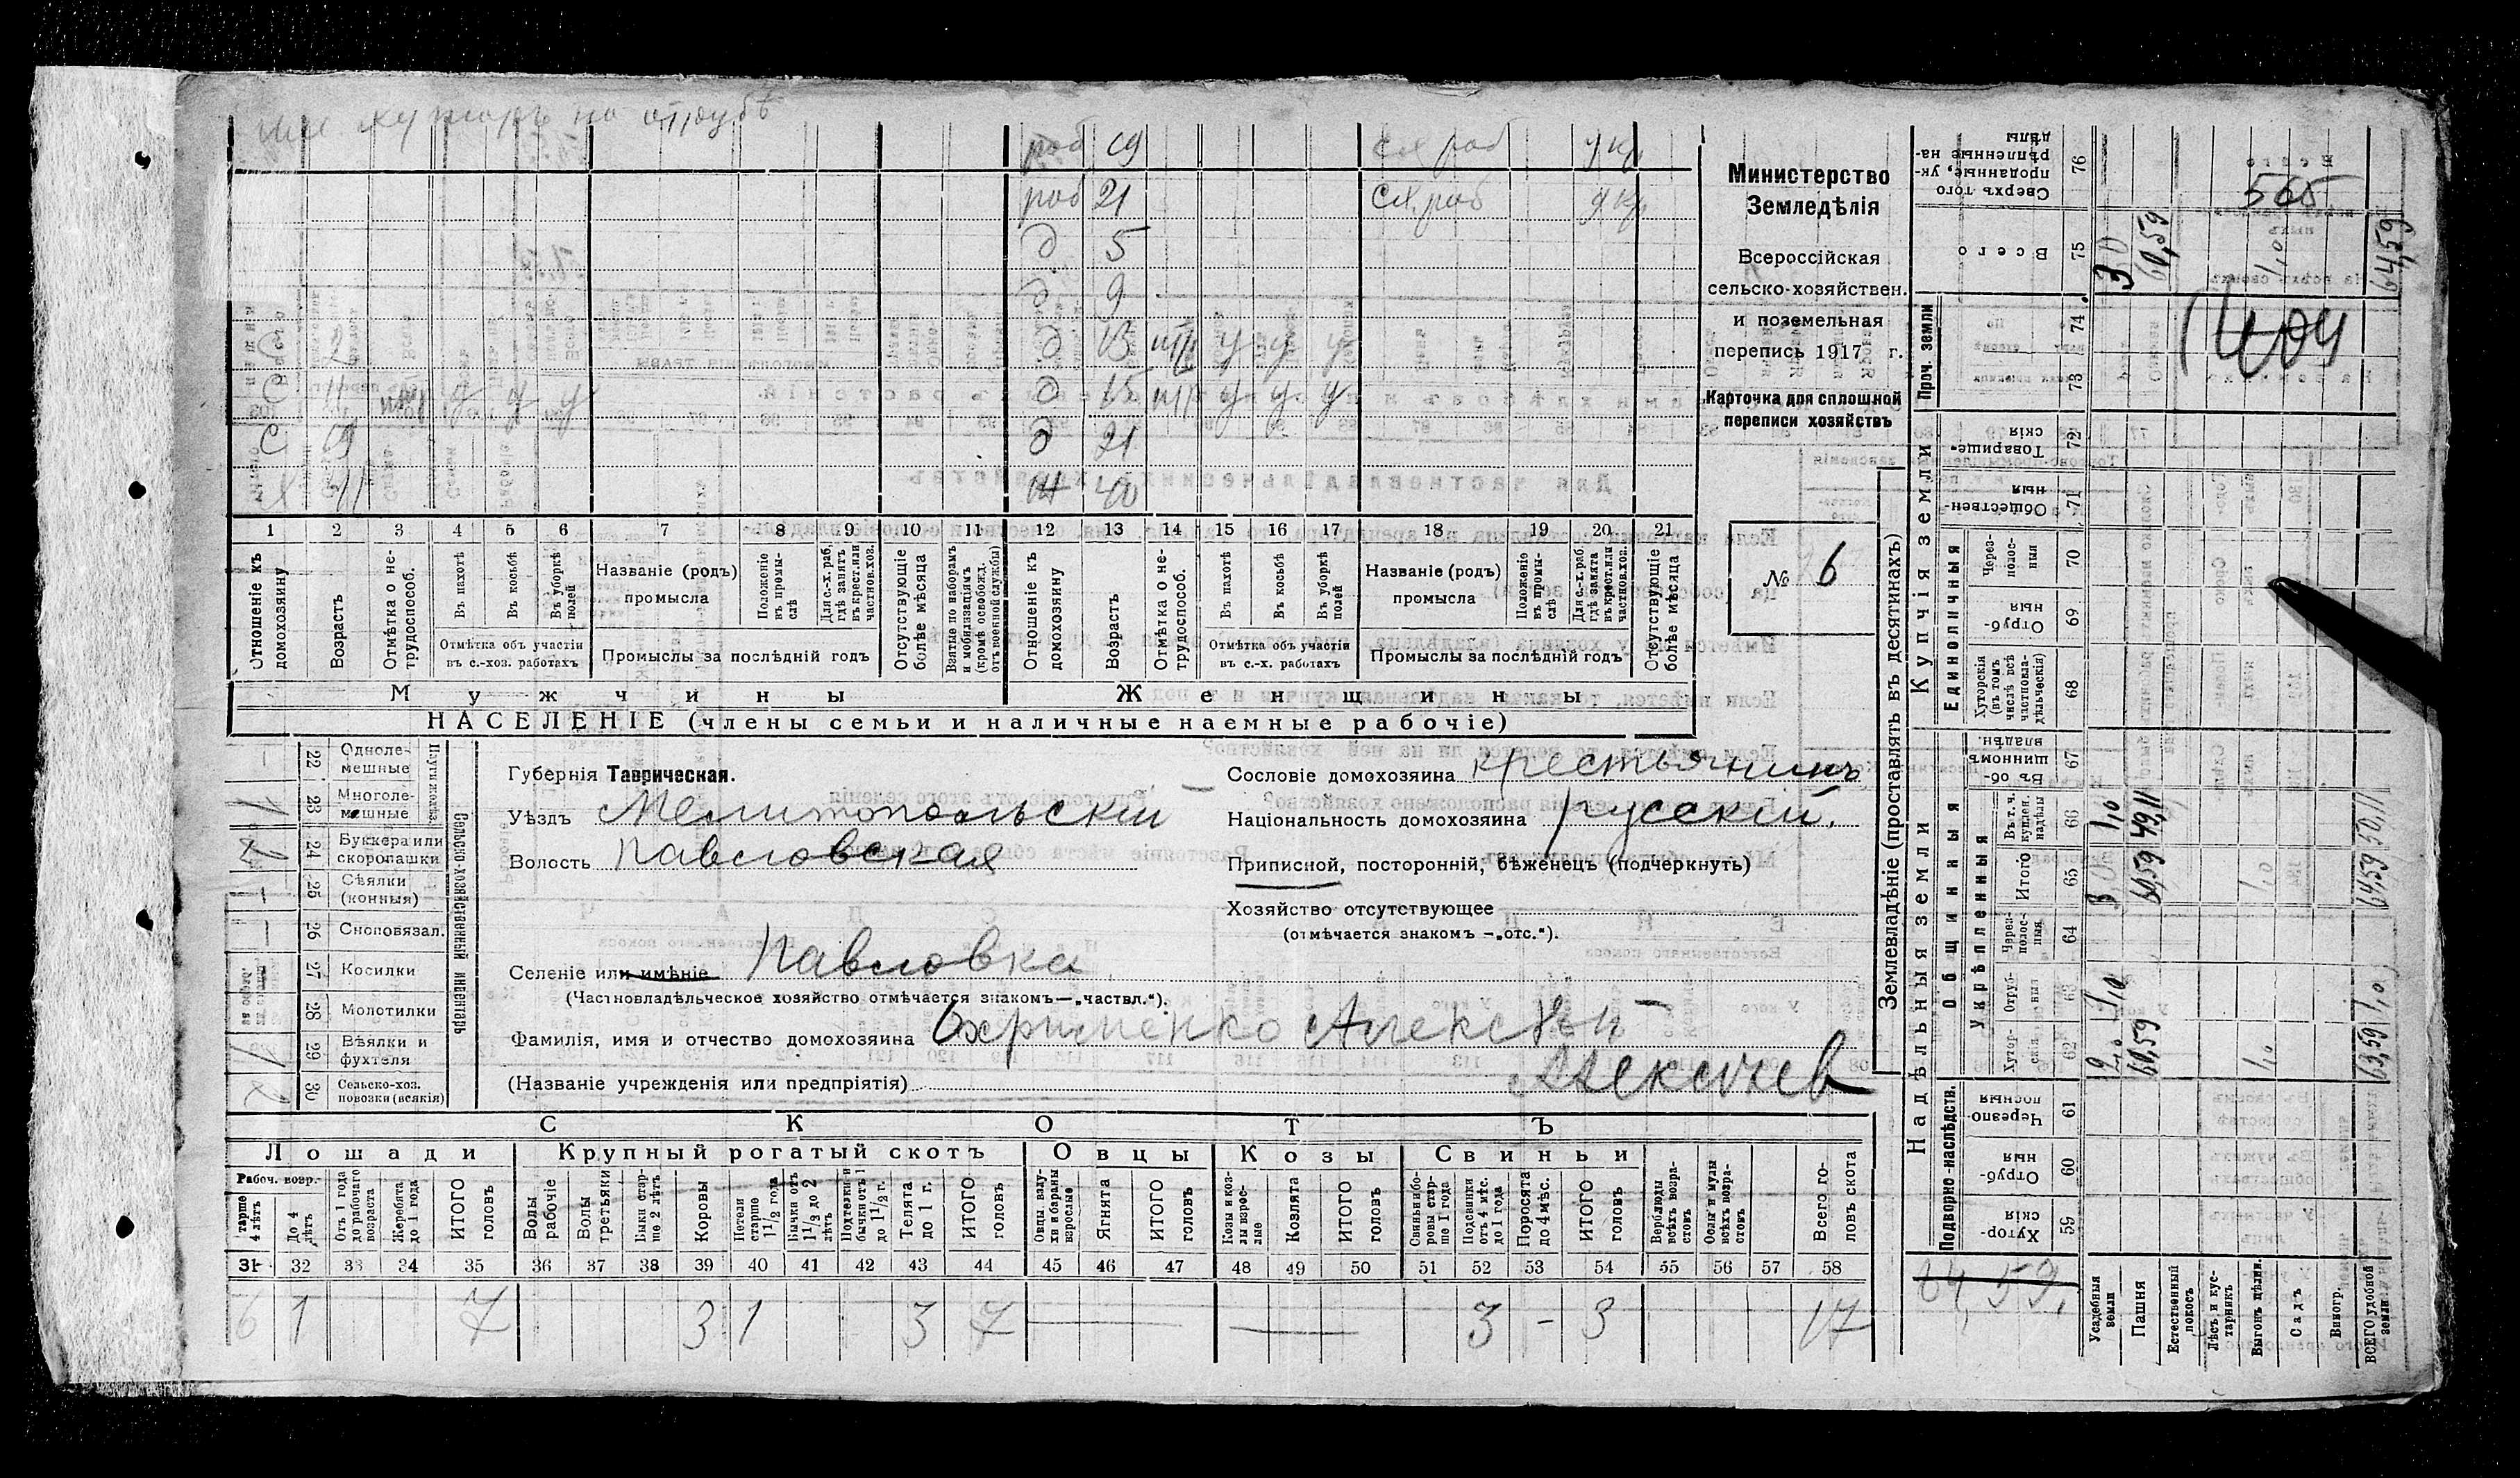 хуторъ на отрубѣ
раб 19 сх раб у кр
раб 21 сх. раб у кр
д 5
д 9
С 2 д 13 у у у
С 11 у у у д 15 у у у
С 19 д 21
Х 41 Ж 40
1 2 3 4 5 6 7 8 9 10 11 12 13 14 15 16 17 18 19 20 21
Отношеніе къ домохозяину
Возрастъ
Отмѣтка о не-трудоспособ.
Въ пахотѣ
Въ косьбѣ
Въ уборкѣ полей
Отмѣтка объ участіи въ с.-хоз. работахъ
Названіе (родъ) промысла
Положеніе въ промы-слѣ
Для с.-х. раб. гдѣ занятъ въ крест. или частнов. хоз.
Промыслы за послѣдній годъ
Отсутствующіе болѣе мѣсяца
Взятые по наборамъ и мобилизаціямъ (кромѣ освобожд. отъ военной службы)
Отношеніе къ домохозяину
Возрастъ
Отмѣтка о не-трудоспособ.
Въ пахотѣ
Въ косьбѣ
Въ уборкѣ полей
Отмѣтка объ участіи въ с.-х. работахъ
Названіе (родъ) промысла
Положеніе въ промы-слѣ
Для с.-х. раб. гдѣ занята въ крест. или частнов. хоз.
Промыслы за послѣдній годъ
Отсутствующіе болѣе мѣсяца
Мужчины Женщины
НАСЕЛЕНІЕ (члены семьи и наличные наемные рабочіе)
Министерство
Земледѣлія
Всероссійская
сельско-хозяйствен.
и поземельная
перепись 1917 г.
Карточка для сплошной
переписи хозяйствъ
№ 6
Сельско-хозяйственный инвентарь
22 Одноле-мешные —
23 Многоле-мешные 1
24 Буккера или скоропашки 2
25 Сѣялки (конныя) 1
26 Сноповязал. —
27 Косилки
28 Молотилки
29 Вѣялки и фухтеля 1
30 Сельско-хоз. повозки (всякія) 2
Губернія Таврическая.
Уѣздъ Мелитопольскій
Волость Павловская
Селеніе или имѣніе Павловка
(Частновладѣльческое хозяйство отмѣчается знакомъ—„частвл.“).
Фамилія, имя и отчество домохозяина Охрименко Алексѣй
Алексѣев
(Названіе учрежденія или предпріятія)
Сословіе домохозяина крестьянинъ
Національность домохозяина русскій.
Приписной, посторонній, бѣженецъ (подчеркнуть)
Хозяйство отсутствующее
(отмѣчается знакомъ —„отс.“).
СКОТЪ
Лошади Крупный рогатый скотъ Овцы Козы Свиньи
Рабоч. возр.
тарше 4 лѣтъ
До 4 лѣтъ
Отъ 1 года до рабочаго возраста
Жеребята до 1 года
ИТОГО головъ
Волы рабочіе
Волы третьяки
Быки стар-ше 2 лѣтъ
Коровы
Нетели старше 1½ года
Бычки отъ 1½ до 2 лѣтъ
Подтелки и бычки отъ 1 до 1½ г.
Телята до 1 г.
ИТОГО головъ
Овцы, валу-хи и бараны взрослые
Ягнята
ИТОГО головъ
Козы и коз-лы взрос-лые
Козлята
ИТОГО головъ
Свиньи и бо-ровы стар-ше 1 года
Подсвинки отъ 4 мѣс. до 1 года
Поросята до 4 мѣс.
ИТОГО головъ
Верблюды всѣхъ возра-стовъ
Ослы и мулы всѣхъ возра-стовъ
Всего го-ловъ скота
31 32 33 34 35 36 37 38 39 40 41 42 43 44 45 46 47 48 49 50 51 52 53 54 55 56 57 58
6 1 7 3 1 3 7 — — 3 - 3 17
Землевладѣніе (проставлять въ десятинахъ)
Надѣльныя земли Купчія земли Проч. земли
Подворно-наслѣдств. Общинныя Единоличныя
Укрѣпленныя
Хутор-скія 59
Отруб-ныя 60
Черезпо-лосныя 61
Хутор-скія 62
Отруб-ныя 63
Через-полос-ныя 64
Итого 65
Въ т. ч. купчен. надѣлы 66
Въ об-щинномъ владѣн. 67
Хуторскія (въ томъ числѣ всѣ частновла-дѣльческія) 68
Отруб-ныя 69
Через-полос-ныя 70
Обществен-ныя 71
Товарище-скія 72
73
74
Всего 75
Сверхъ того проданные, ук-рѣпленные на-дѣлы 76
Усадебныя земли 2,0 1,0 3,0 1,0 3,0
Пашня 60,59 60,59 49,11 60,59
Естественный покосъ
Лѣсъ и кус-тарникъ
Выгонъ цѣлин. 1,0 1,0 1,0
Садъ
Виногр.
ВСЕГО удобной земли 63,59 1,0 64,59 50,11 64,59
64,59.
565